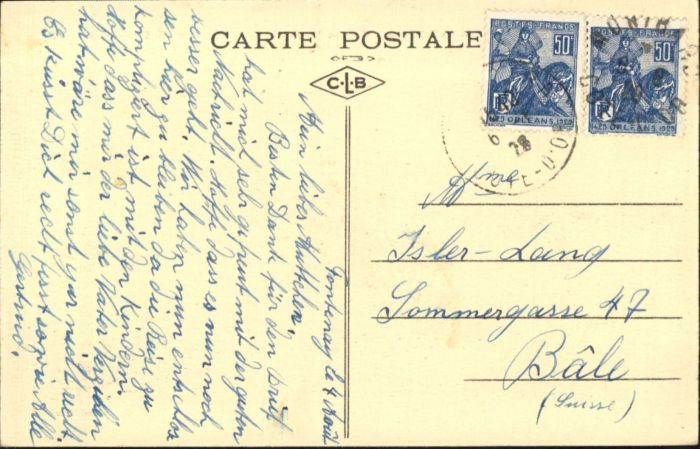 CARTE POSTALE
C·L·B
POSTES-FRANCE
50c
RF
1429 ORLÉANS 1929
POSTES-FRANCE
50c
RF
1429 ORLÉANS 1929
Fontenay le 4 Août
Mein liebes Mutterchen,
Besten Dank für den Brief
hat mich sehr gefreut mit der guten
Nachricht. Hoffe dass es nun noch
besser geht. Wir haben nun entschlos
sen hier zu bleiben da die Reise zu
kompliziert ist mit den Kindern.
Hoffe dass mir der liebe Vater verziehen
hat, wäre mir sonst gar nicht recht.
Es küsst Dich recht fest sowie Alle
Gertrud.
Mme
Isler-Lang
Sommergasse 47
Bâle
(Suisse)